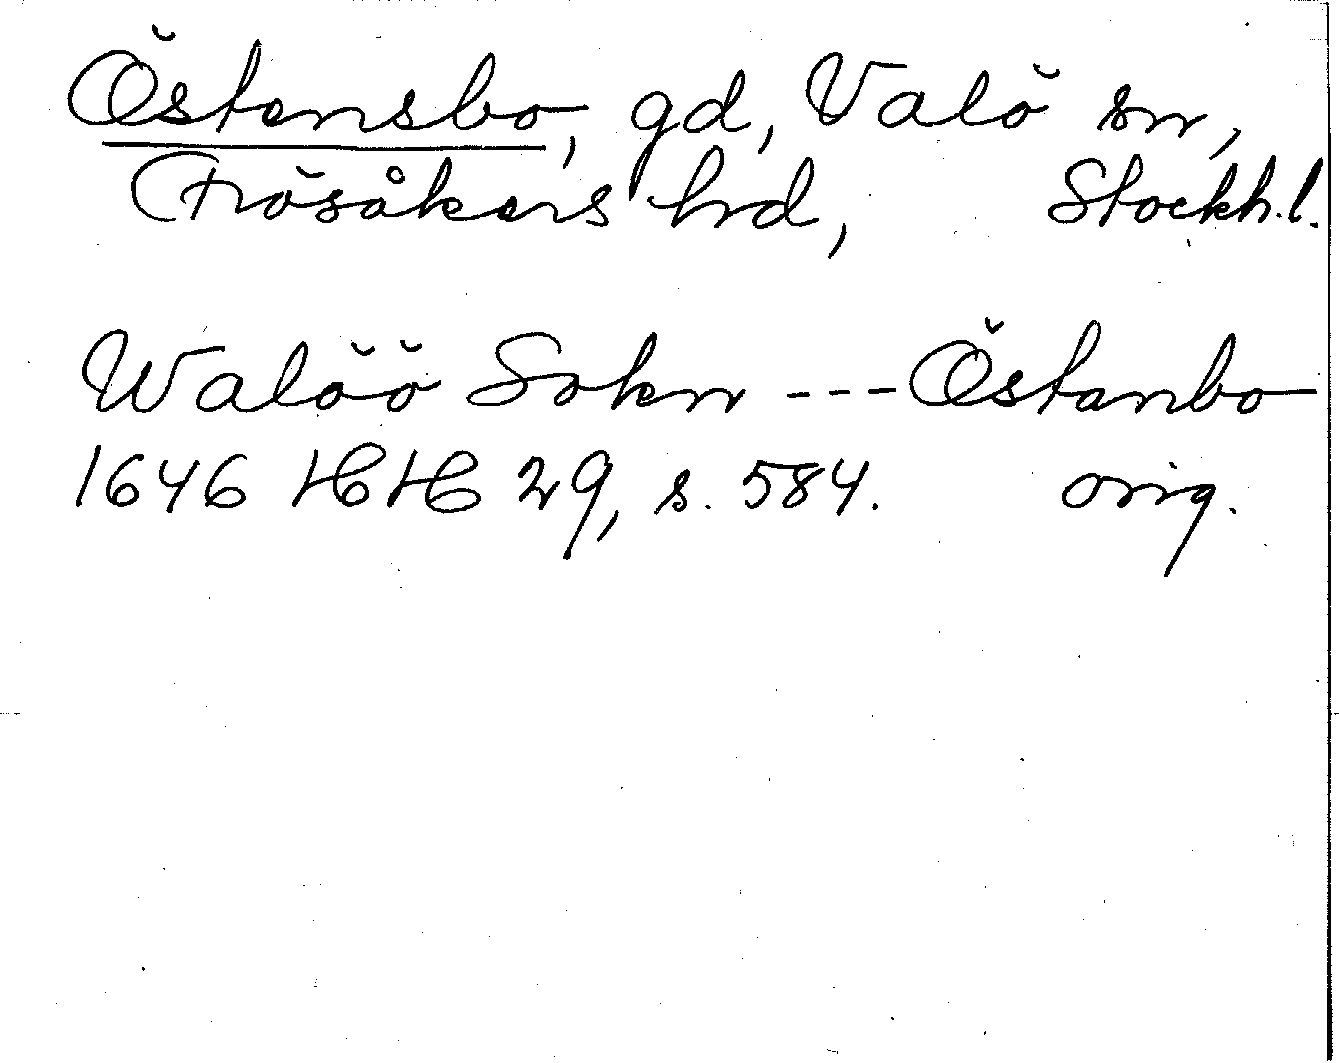 Östensbo, gd, Valö sn,
Frösåkers hrd, Stockh.l.
Walöö Sokn --- Östanbo
1646 HH 29, s. 584. orig.